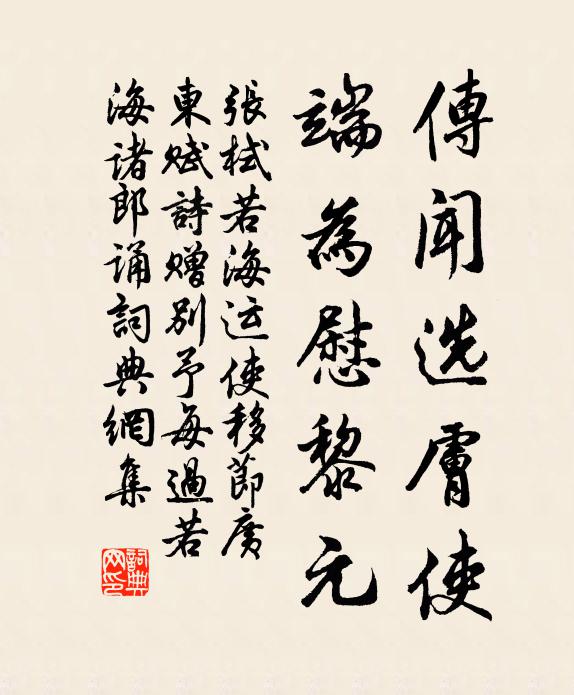 傳聞选膚使
端為慰黎元
張栻若海运使移節廣
東赋詩赠别予每過若
海诸郎诵詞典網集
詞典网印